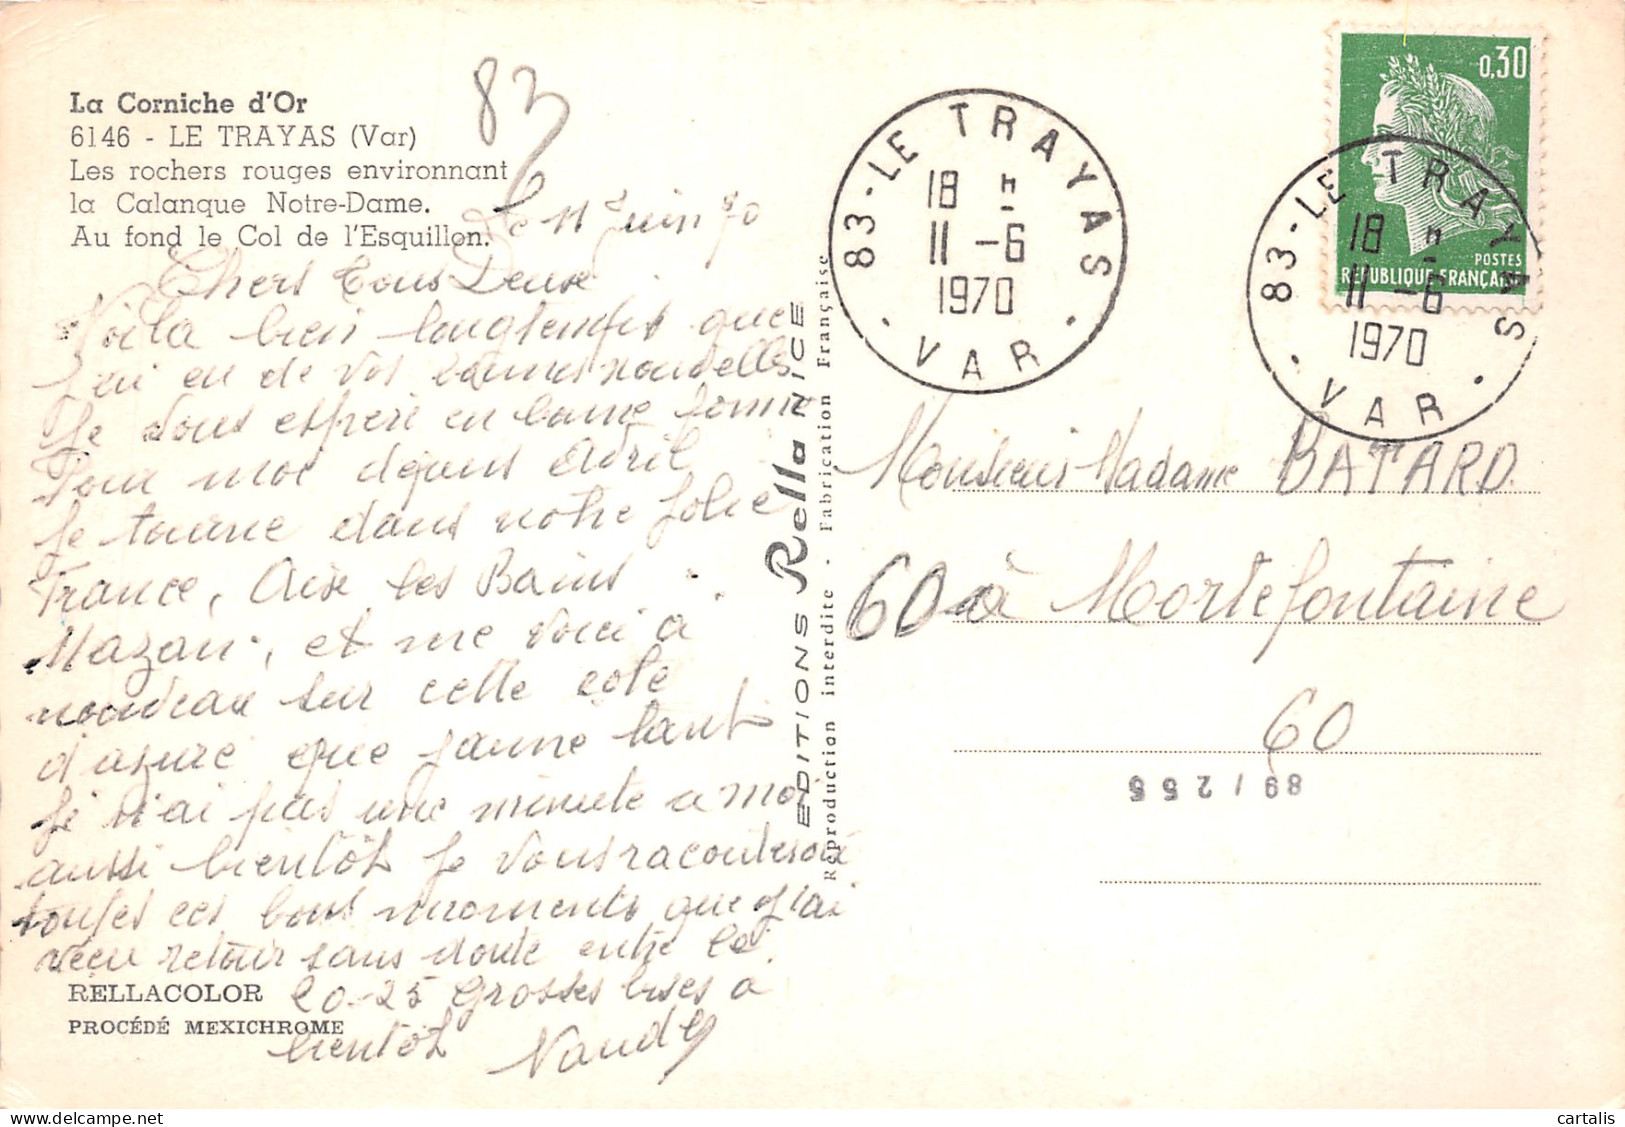 La Corniche d'Or
6146 - LE TRAYAS (Var)
Les rochers rouges environnant
la Calanque Notre-Dame.
Au fond le Col de l'Esquillon.
83
Le 11 Juin 70
Chers tous Deux
Voila bien longtemps que
j'ai eu de vos bonnes nouvelles
Je vous espere en bonne forme
Pour moi depuis Avril
Je tourne dans notre jolie
France, Aix les Bains
Mazan, et me voici à
nouveau sur cette cote
d'azure que j'aime tant
Je n'ai pas une minute a moi
aussi bientôt Je vous raconterai
toutes ces bons moments que j'ai
vecu retour sans doute entre le
20-25 Grosses bises a
bientôt
RELLACOLOR
PROCÉDÉ MEXICHROME
EDITIONS Rella NICE
Reproduction interdite - Fabrication Française
83-LE TRAYAS
18 H
11 -6
1970
VAR
0,30
POSTES
REPUBLIQUE FRANÇAISE
83-LE TRAYAS
18 H
11 -6
1970
VAR
Monsieur Madame BATARD
60 à Mortefontaine
60
89/255
cartalis